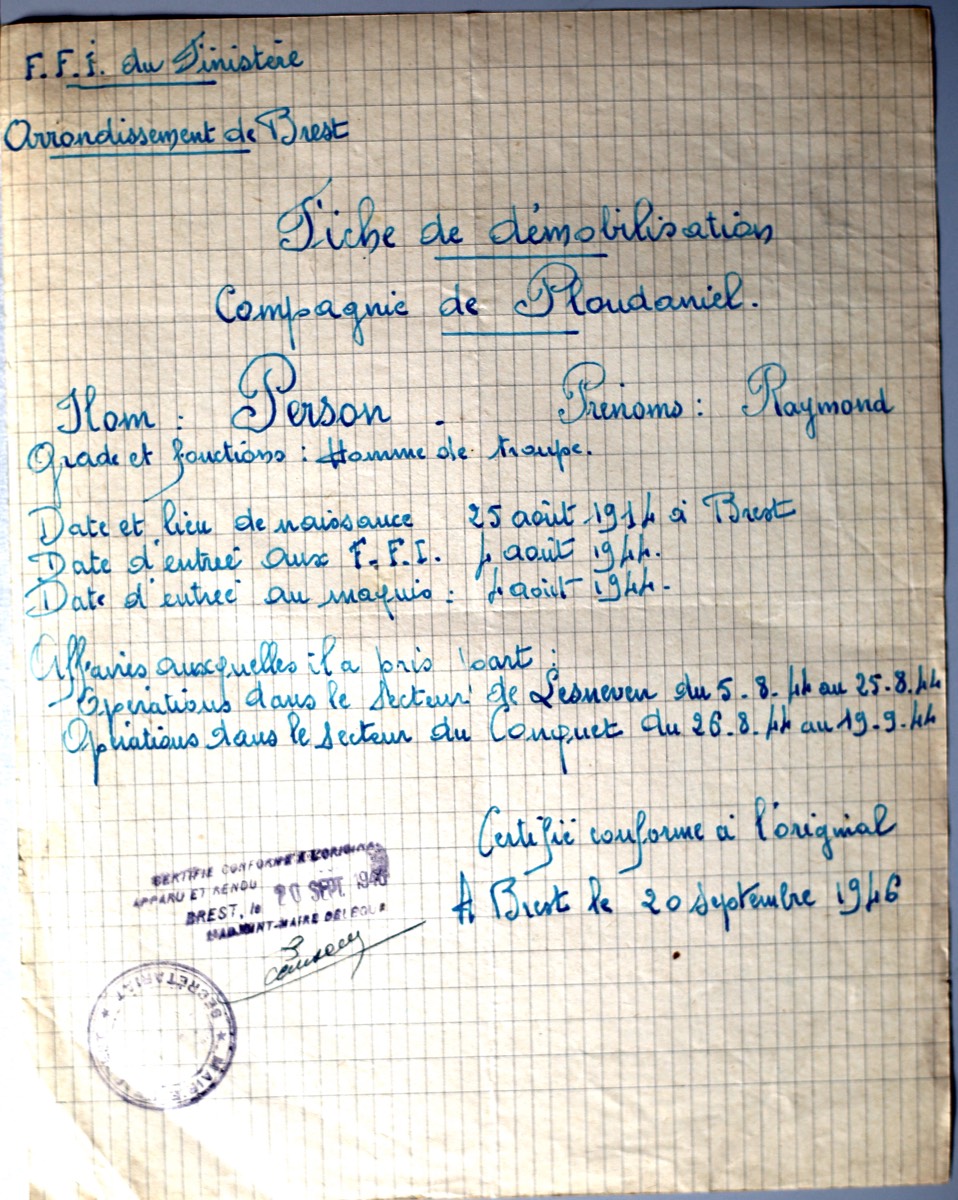 F.F.I. du Finistère
Arrondissement de Brest
Fiche de démobilisation
Compagnie de Ploudaniel.
Nom : Person . Prénoms : Raymond
Grade et fonctions : Homme de troupe.
Date et lieu de naissance 25 août 1914 à Brest
Date d'entreé aux F.F.I. 4 août 1944.
Date d'entreé au maquis : 4 août 1944.
Affaires auxquelles il a pris part :
Opérations dans le secteur de Lesneven du 5.8.44 au 25.8.44
Opérations dans le secteur du Conquet du 26.8.44 au 19.9.44
Certifié conforme à l'original
A Brest le 20 septembre 1946
CERTIFIE CONFORME A L'ORIGINAL
APPARU ET RENDU
BREST, le 20 SEPT 1946
L'ADJOINT-MAIRE DELEGUE
SECRETARIAT
MAIRIE